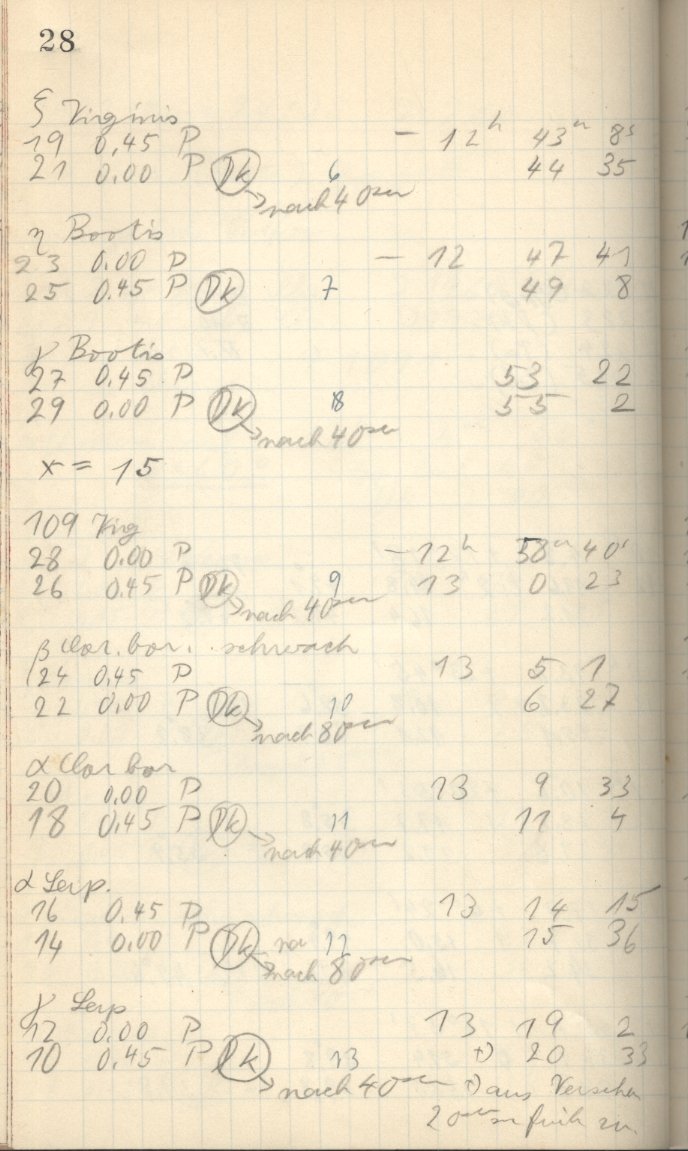 28
ξ Virginis
19 0.45 P — 12h 43m 8s
21 0.00 P Dk 6 44 35
→ nach 40sec
η Bootis
23 0.00 P — 12 47 41
25 0.45 P Dk 7 49 8
γ Bootis
27 0.45 P 53 22
29 0.00 P Dk 8 55 2
→ nach 40sec
x = 15
109 Virg
28 0.00 P — 12h 58m 40s
26 0.45 P Dk 9 13 0 23
→ nach 40sec
β Cor. bor. schwach
24 0.45 P 13 5 1
22 0.00 P Dk 10 6 27
→ nach 80sec
α Cor bor
20 0.00 P 13 9 33
18 0.45 P Dk 11 11 4
→ nach 40sec
α Serp.
16 0.45 P 13 14 15
14 0.00 P Dk na 12 15 36
→ nach 80sec
γ Serp
12 0.00 P 13 19 2
10 0.45 P Dk 13 +) 20 33
→ nach 40sec +) aus Versehen
20sec früh